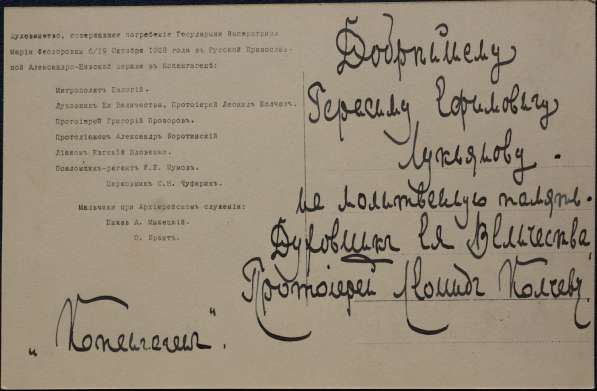 Духовенство, совершавшее погребение Государыни Императрицы
Маріи Феодоровны 6/19 Октября 1928 года въ Русской Православ-
ной Александро-Невской церкви въ Копенгагенѣ:
Митрополитъ Евлогій.
Духовникъ Ея Величества, Протоіерей Леонидъ Колчевъ.
Протоіерей Григорій Прозоровъ.
Протодіаконъ Александръ
Діаконъ Евгеній
Псаломщикъ-регентъ
Церковникъ С.Н.
Мальчики при Архіерейскомъ служеніи:
Князь А.
О.
Добрѣйшему
Герасиму Ефимовичу
Лукьянову.
на молитвенную память.
Духовникъ Ея Величества
Протоіерей Леонидъ Колчевъ.
„Копенгагенъ".